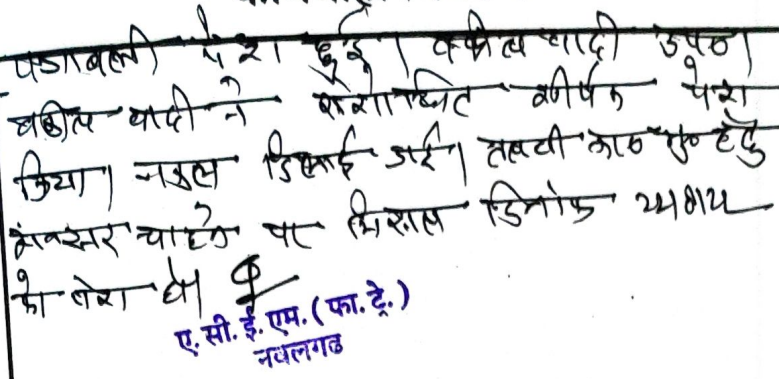 पत्रावली पेश हुई। वकील वादी उप०।
वकील वादी ने संशोधित शीर्षक पेश
किया। नकल दिलाई गई। तलबी का० हेतु
अवसर चाहने पर मिसल दिनांक
को पेश हो।
ए.सी.ई.एम.(फा.ट्रे.)
नवलगढ